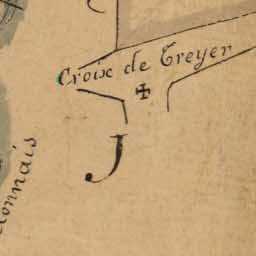 Croix de Treyer
J
onnais